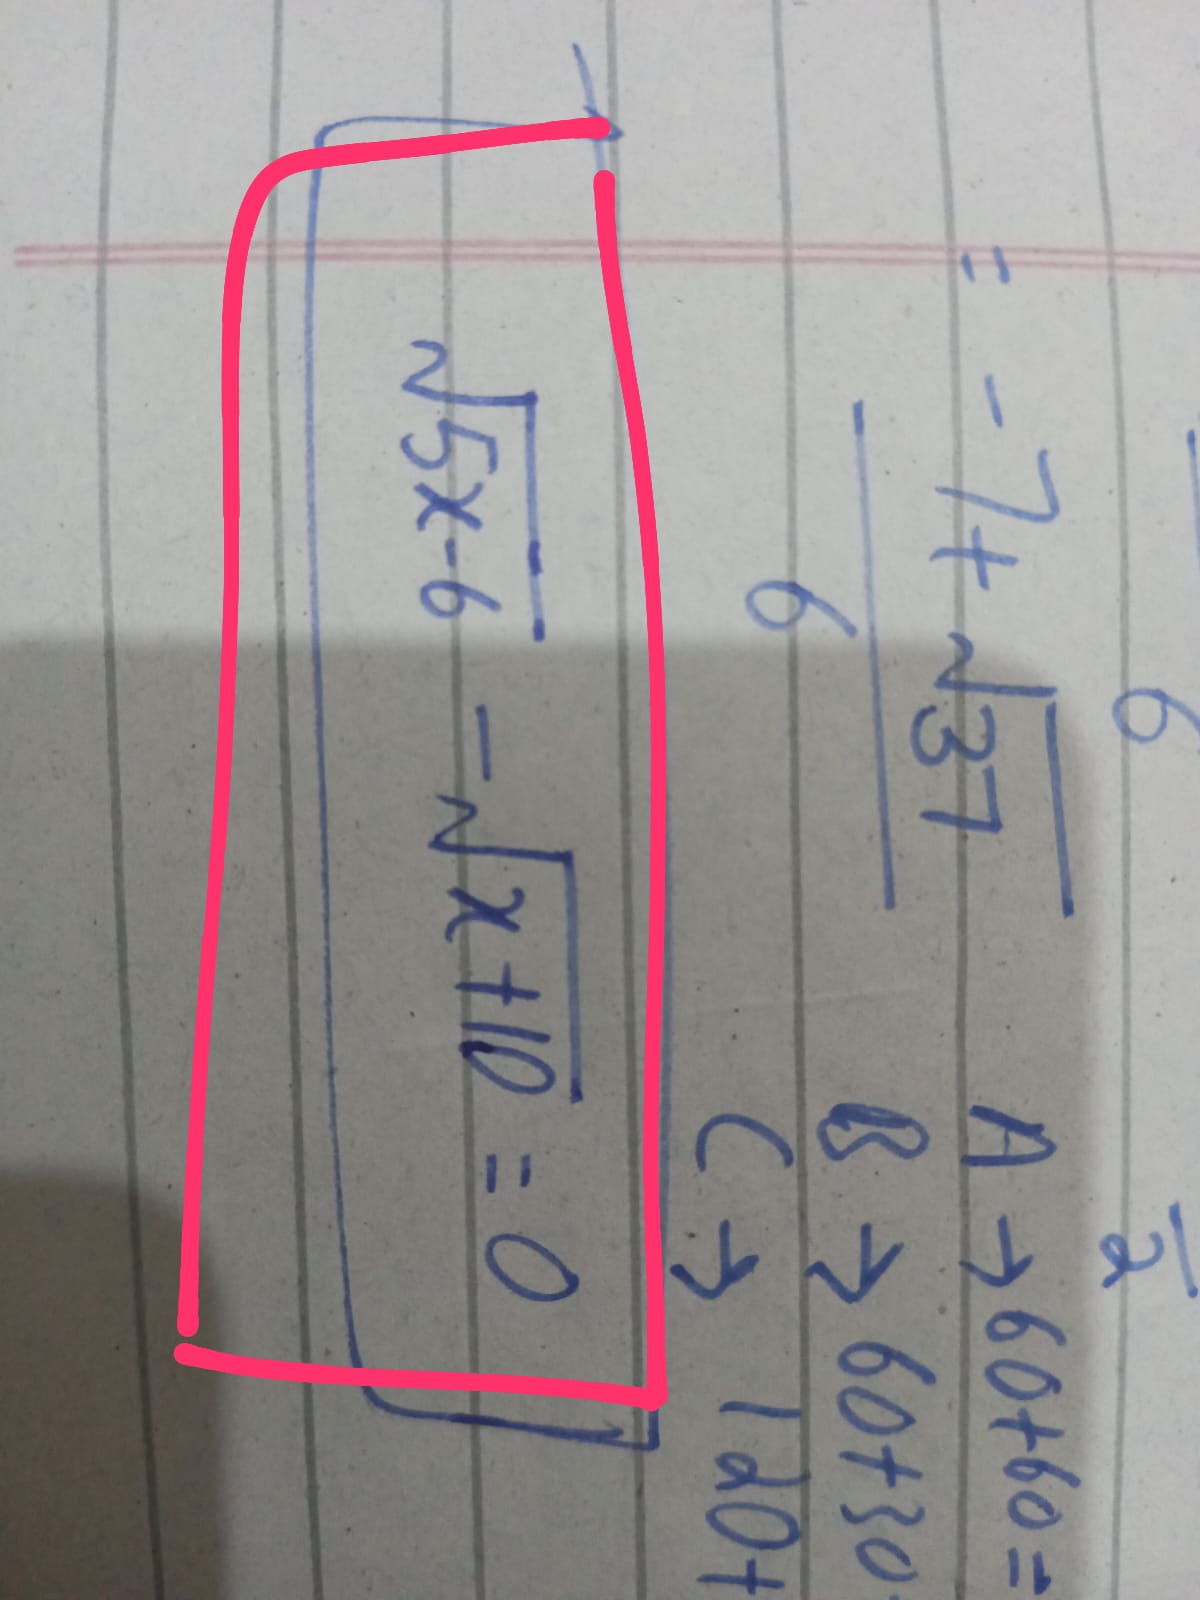 6
= -7+√37
6
2
A → 60+60=
B → 60+30
C → 120+
√5x-6 - √x+10 = 0